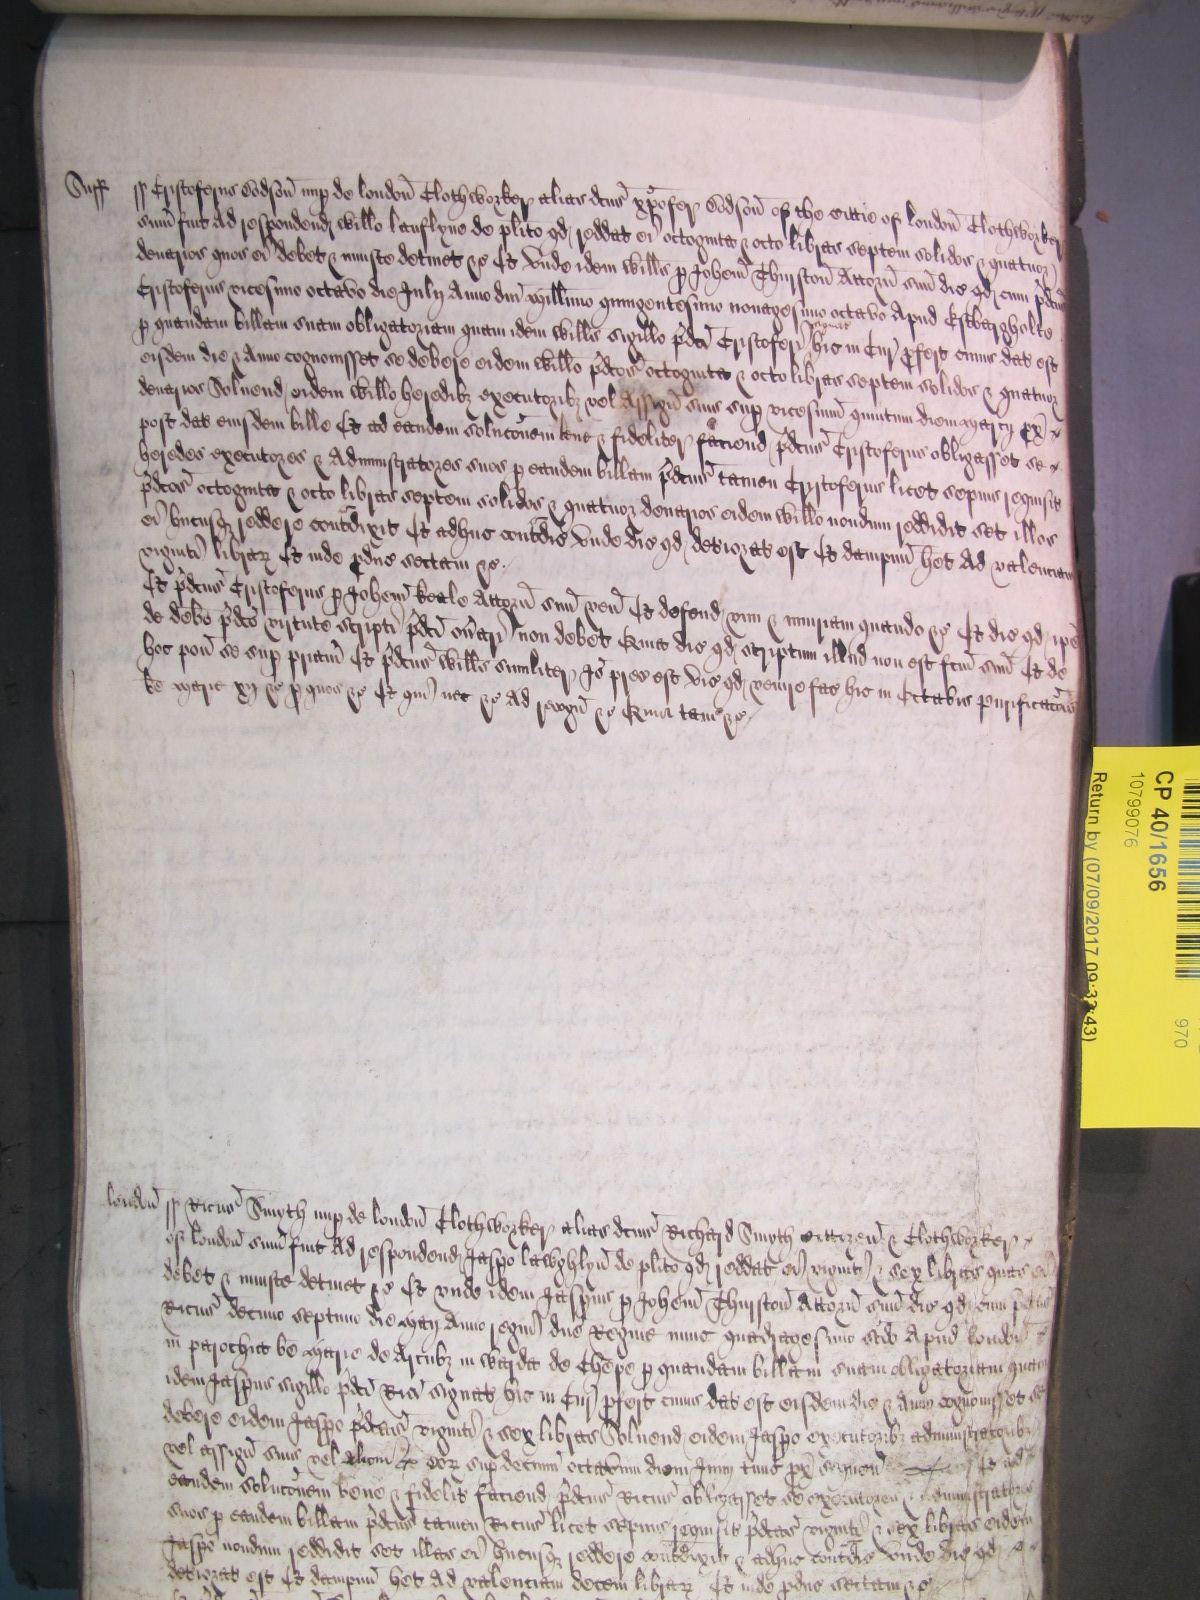 Suff ss Cristoferus Dodson nup de London Clothworker alias dcus Xpofer Dodson of the cittie of London Clothworker
sum fuit ad respondend Willo Lauflyne de plito qd reddat ei octoginta & octo libras septem solidos & quatuor
denarios quos ei debet & iniuste detinet &c Et unde idem Wills p Johem Thurston Attorn suu dic qd cum pdcus
Cristoferus vicesimo octavo die Julij Anno dni Millimo quingentesimo nonagesimo octavo Apud Estbargholte
p quandam billam suam obligatoriam quam idem Wills sigillo pdci Cristoferi signat hic in Cur pfert cuius dat est
eisdem die & Anno cognovisset se debere eidem Willo pdcas octoginta & octo libras septem solidos & quatuor
denarios Solvend eidem Willo heredibz executoribz vel Assign suis sup vicesimu quintum diem Marcij px
post dat eiusdem bille Et ad eandem solucoem bene & fideliter faciend pdcus Cristoferus obligasset se
heredes executores & Administratores suos p eandem billam pdcus tamen Cristoferus licet sepius requisit
pdcas octoginta & octo libras septem solidos & quatuor denarios eidem Willo nondum reddidit set illos
ei hucusqz reddere contradixit Et adhuc contradic unde dic qd deteriorat est Et dampnu het Ad valenciam
viginti librar Et inde pduc sectam &c
Et pdcus Cristoferus p Johem Keale Attorn suu ven Et defend vim & iniuriam quando &c Et dic qd ipe
de debo pdco virtute scripti pdci onari non debet Quia dic qd scriptum illud non est fcm suu Et de
hoc pon se sup priam Et pdcus Wills similiter Io prec est vic qd venire fac hic in Octabis purificacois
be Marie xij &c p quos &c Et qui nec &c Ad recogn &c Quia tam &c
London ss Ricus Smyth nup de London Clothworker alias dcus Richard Smyth cittizen & Clothworker
of London sum fuit Ad respondend Jaspo Lawghlyn de plito qd reddat ei viginti & sex libras quas ei
debet & iniuste detinet &c Et unde idem Jasperus p Johem Thurston Attorn suu dic qd cum pdcus
Ricus decimo septimo die Maij Anno regni dne Regine nunc quadragesimo scdo Apud London
in parochia be Marie de Arcubz in warda de Chepe p quandam billam suam obligatoriam quam
idem Jasperus sigillo pdci Rici signat hic in Cur pfert cuius dat est eisdem die & Anno cognovisset se
debere eidem Jaspo pdcas viginti & sex libras Solvend eidem Jaspo executoribz administratoribz
vel assign suis vel eor sup decimu octavum diem Junij tunc px sequen Et ad
eandem solucoem bene & fidelit faciend pdcus Ricus obligasset se executores & administratores
suos p eandem billam pdcus tamen Ricus licet sepius requisit pdcas viginti & sex libras eidem
Jaspo nondum reddidit set illas ei hucusqz reddere contradixit & adhuc contradic unde dic qd
deteriorat est Et dampnu het Ad valenciam decem librar Et inde pduc sectam &c
CP 40/1656
10799076
970
Return by (07/09/2017 09:32:43)